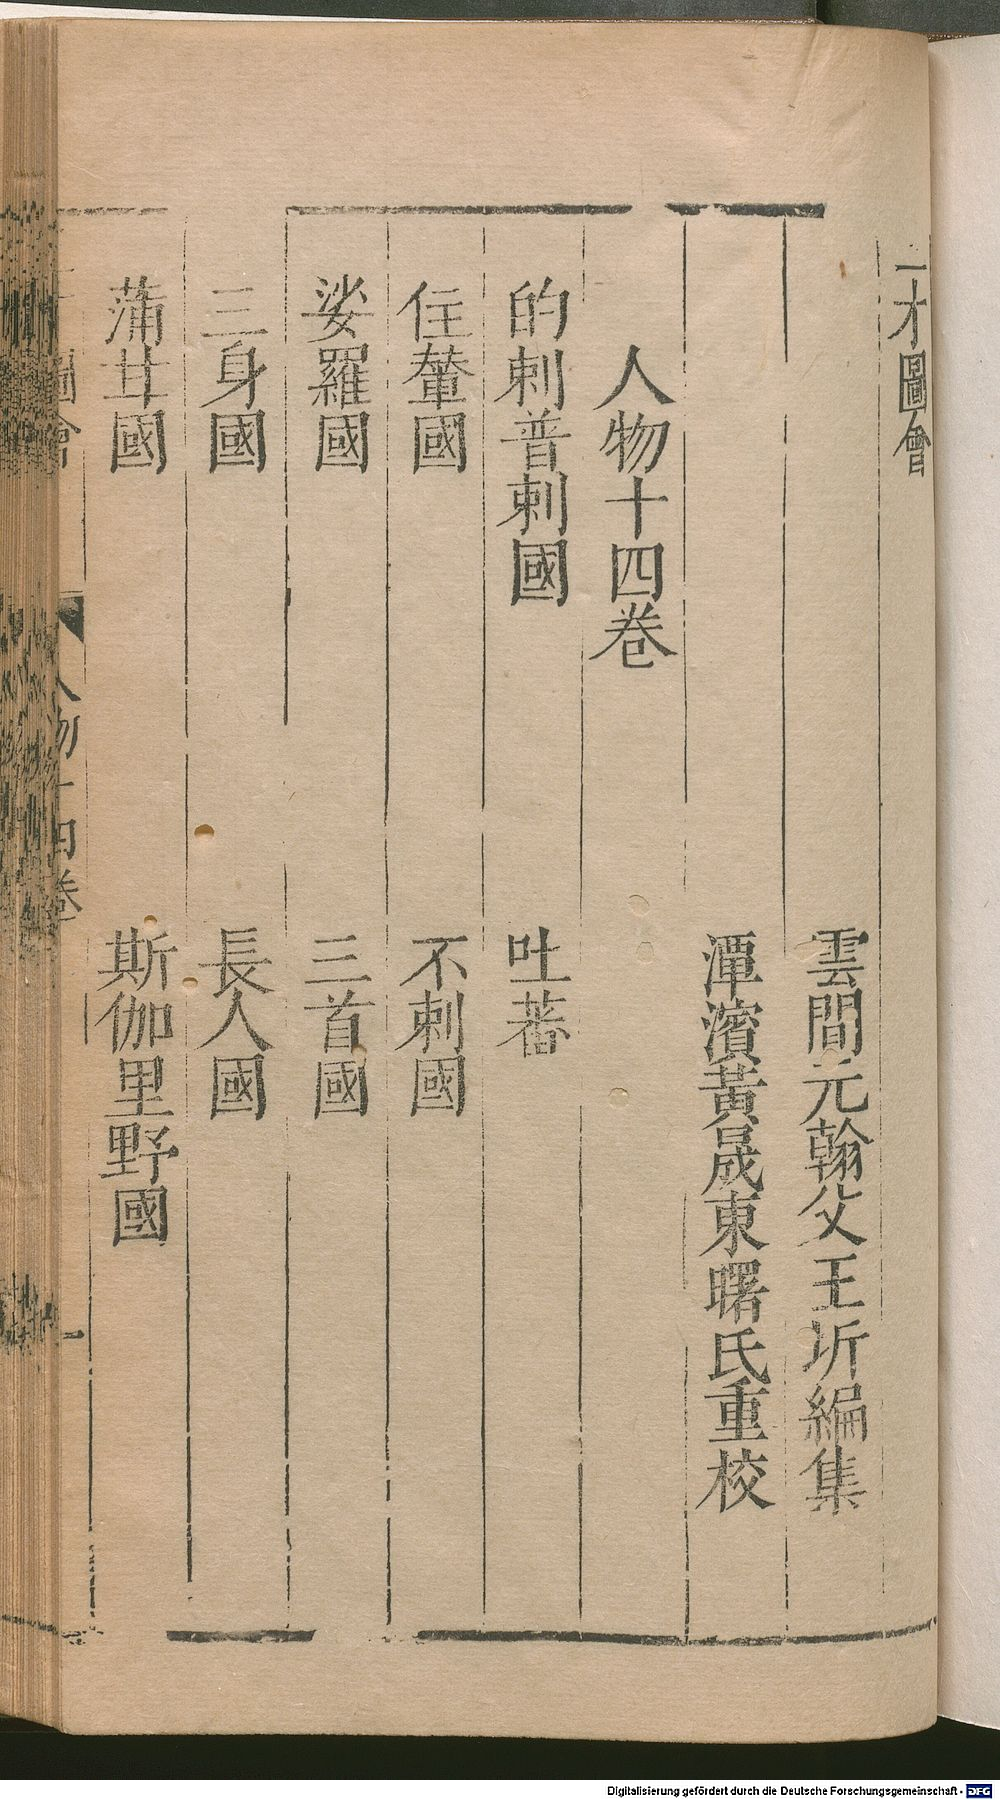 三才圖會
雲間元翰父王圻編集
潭濱黃晟東曙氏重校
人物十四巻
的剌普剌國
吐蕃
住輦國
不剌國
娑羅國
三首國
三身國
長人國
蒲甘國
斯伽里野國
圖會
人物十四巻
一
Digitalisierung gefördert durch die Deutsche Forschungsgemeinschaft - DFG